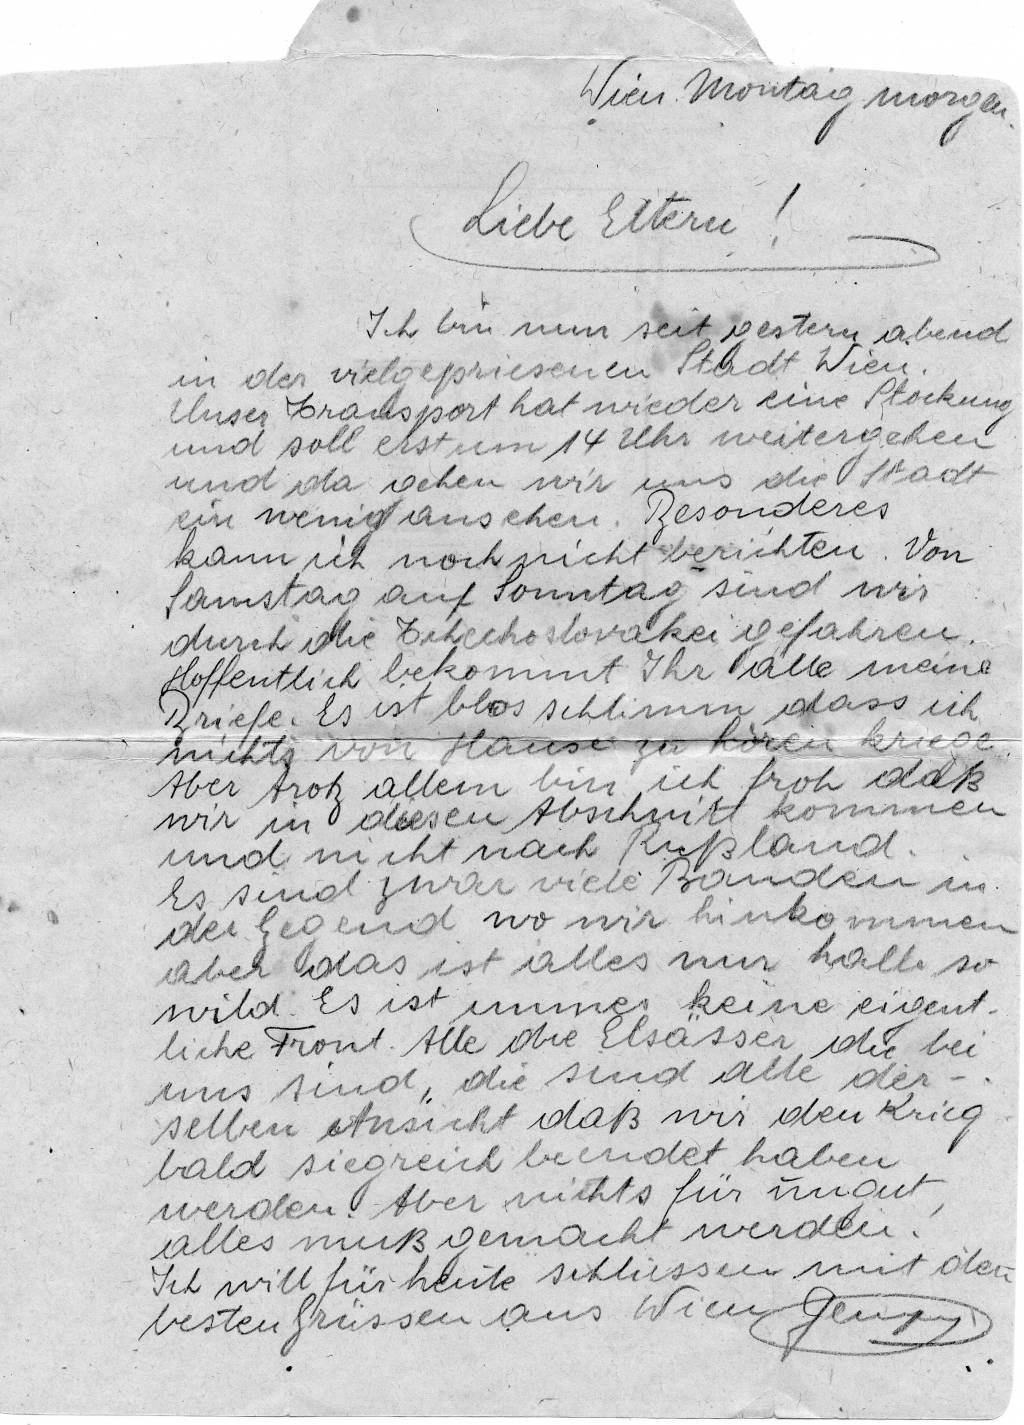 Wien. Montag morgen.
Liebe Eltern!
Ich bin nun seit gestern abend
in der vielgepriesenen Stadt Wien.
Unser Transport hat wieder eine Stockung
und soll erst um 14 Uhr weitergehen
und da gehen wir uns die Stadt
ein wenig ansehen. Besonderes
kann ich noch nicht berichten. Von
Samstag auf Sonntag sind wir
durch die Tchechoslovakei gefahren.
Hoffentlich bekommt Ihr alle meine
Briefe. Es ist blos schlimm dass ich
nichts von Hause zu hören kriege.
Aber trotz allem bin ich froh daß
wir in diesen Abschnitt kommen
und nicht nach Rußland.
Es sind zwar viele Banden in
der Gegend wo wir hinkommen
aber das ist alles nur halb so
wild. Es ist immer keine eigent-
liche Front. Alle die Elsässer die bei
uns sind, die sind alle der-
selben Ansicht daß wir den Krieg
bald siegreich beendet haben
werden. Aber nichts für ungut,
alles muß gemacht werden.
Ich will für heute schliessen mit den
besten Grüssen aus Wien